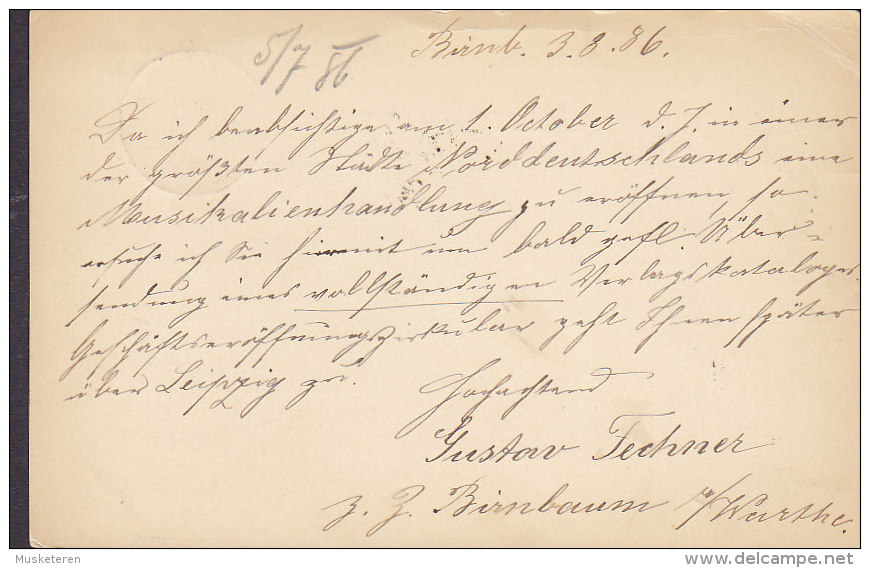 5/7 86
Birnb. 3.8.86.
Da ich beabsichtige am 1. October d. J. in einer
der größten Städte Norddeutschlands eine
Musikalienhandlung zu eröffnen, so
ersuche ich Sie hiermit um bald gefl. Über-
sendung eines vollständigen Verlagskataloges.
Geschäftseröffnungszirkular geht Ihnen später
über Leipzig zu.
Hochachtend
Gustav Fechner
z. Z. Birnbaum a/Warthe.
Musketeren
delcampe.net